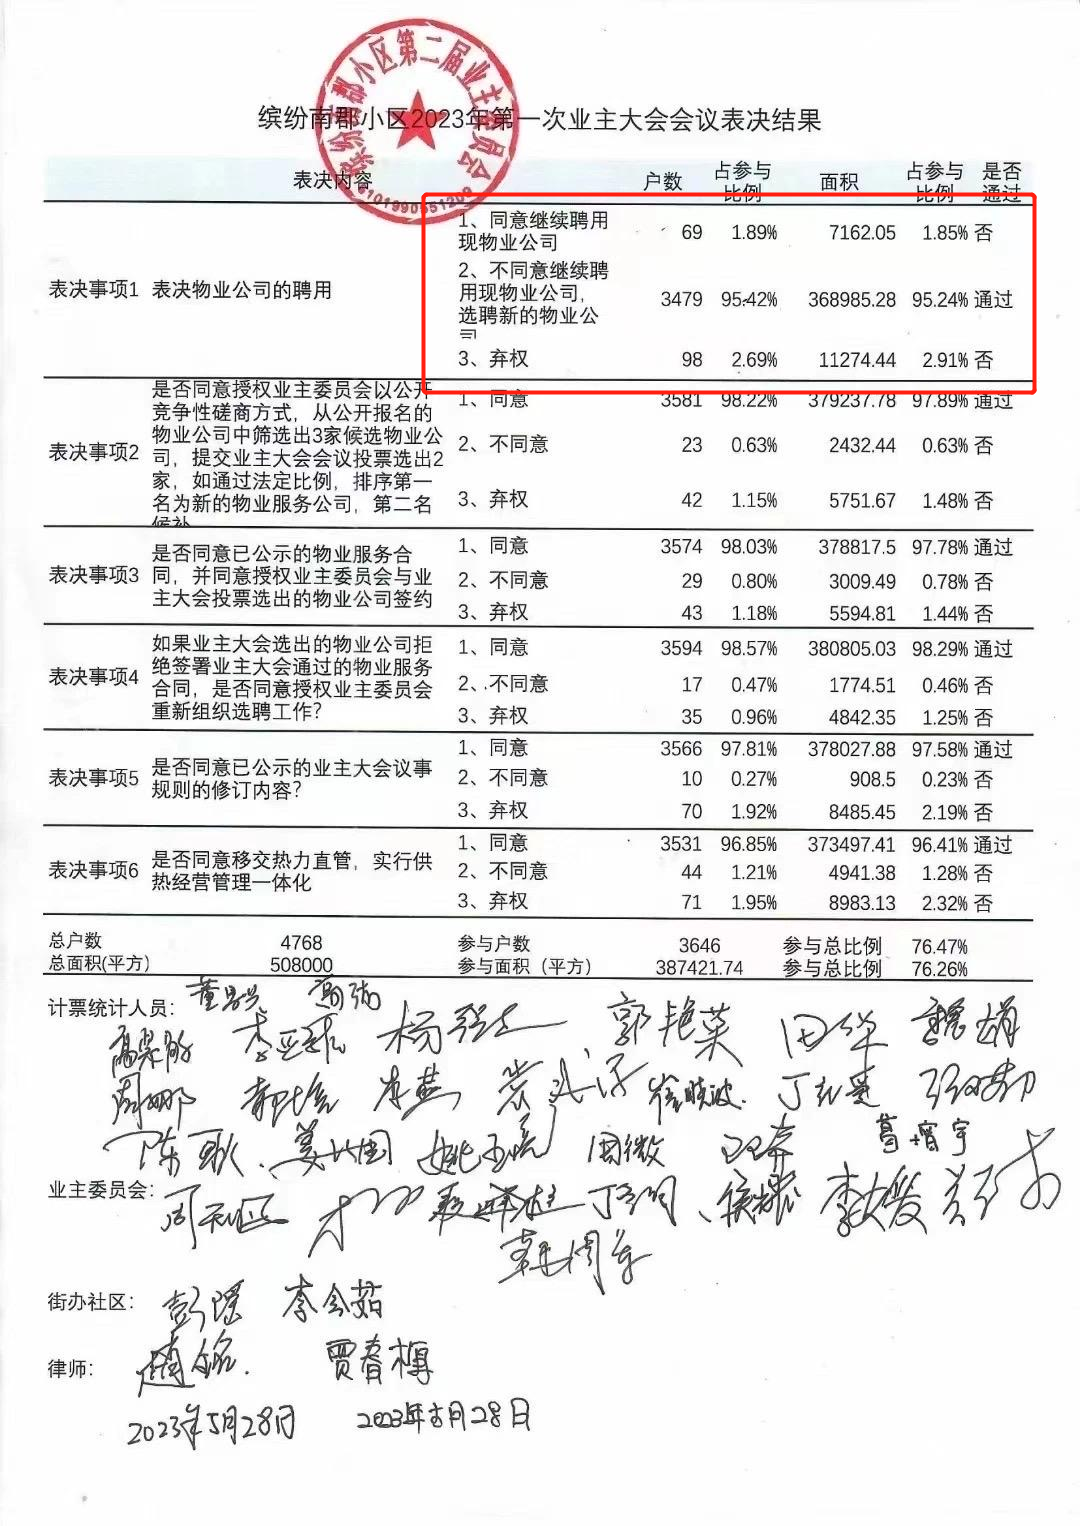 缤纷南郡小区第二届业主委员会
6101990551209
缤纷南郡小区2023年第一次业主大会会议表决结果
表决内容 户数 占参与比例 面积 占参与比例 是否通过
表决事项1 表决物业公司的聘用
1、同意继续聘用现物业公司 69 1.89% 7162.05 1.85% 否
2、不同意继续聘用现物业公司，选聘新的物业公司 3479 95.42% 368985.28 95.24% 通过
3、弃权 98 2.69% 11274.44 2.91% 否
表决事项2 是否同意授权业主委员会以公开竞争性磋商方式，从公开报名的物业公司中筛选出3家候选物业公司，提交业主大会会议投票选出2家，如通过法定比例，排序第一名为新的物业服务公司，第二名候补
1、同意 3581 98.22% 379237.78 97.89% 通过
2、不同意 23 0.63% 2432.44 0.63% 否
3、弃权 42 1.15% 5751.67 1.48% 否
表决事项3 是否同意已公示的物业服务合同，并同意授权业主委员会与业主大会投票选出的物业公司签约
1、同意 3574 98.03% 378817.5 97.78% 通过
2、不同意 29 0.80% 3009.49 0.78% 否
3、弃权 43 1.18% 5594.81 1.44% 否
表决事项4 如果业主大会选出的物业公司拒绝签署业主大会通过的物业服务合同，是否同意授权业主委员会重新组织选聘工作？
1、同意 3594 98.57% 380805.03 98.29% 通过
2、不同意 17 0.47% 1774.51 0.46% 否
3、弃权 35 0.96% 4842.35 1.25% 否
表决事项5 是否同意已公示的业主大会议事规则的修订内容？
1、同意 3566 97.81% 378027.88 97.58% 通过
2、不同意 10 0.27% 908.5 0.23% 否
3、弃权 70 1.92% 8485.45 2.19% 否
表决事项6 是否同意移交热力直管，实行供热经营管理一体化
1、同意 3531 96.85% 373497.41 96.41% 通过
2、不同意 44 1.21% 4941.38 1.28% 否
3、弃权 71 1.95% 8983.13 2.32% 否
总户数 4768 参与户数 3646 参与总比例 76.47%
总面积(平方) 508000 参与面积（平方） 387421.74 参与总比例 76.26%
计票统计人员：
郭艳英 田华
周娜 李燕 崔晓波
陈 周微
业主委员会：
街办社区： 彭瑶 李会茹
律师： 贾春梅
2023年5月28日 2023年5月28日